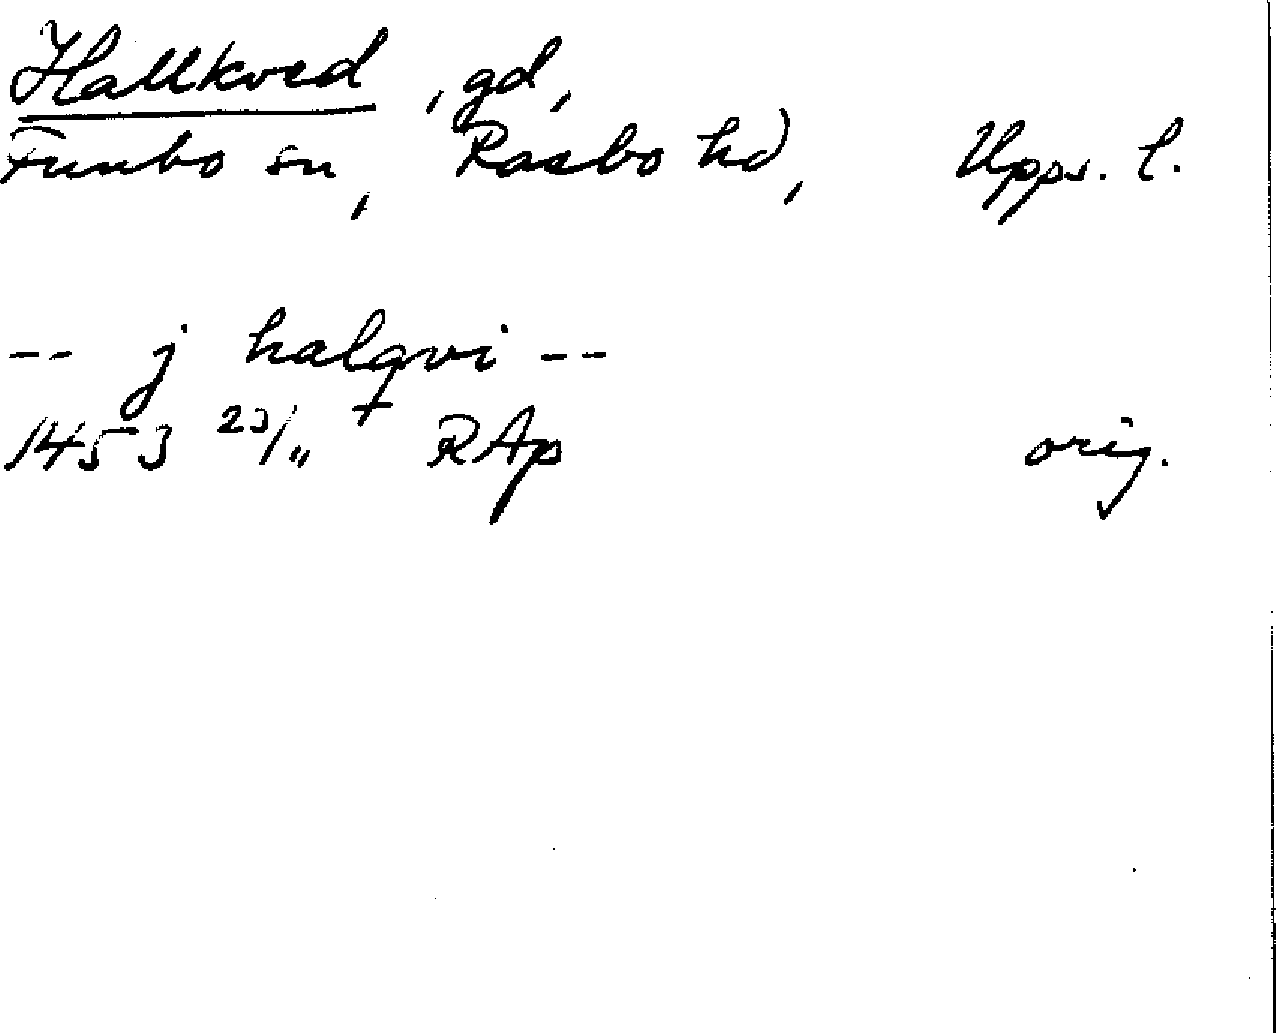 Hallkved, gd,
Funbo sn, Rasbo hd, Upps. l.
-- j halqvi --
1453 23/11 RAp orig.